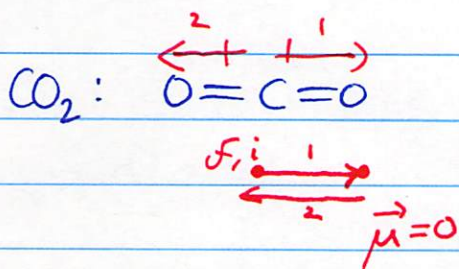 2 1
CO₂: O=C=O
f,i 1
2
μ⃗=0